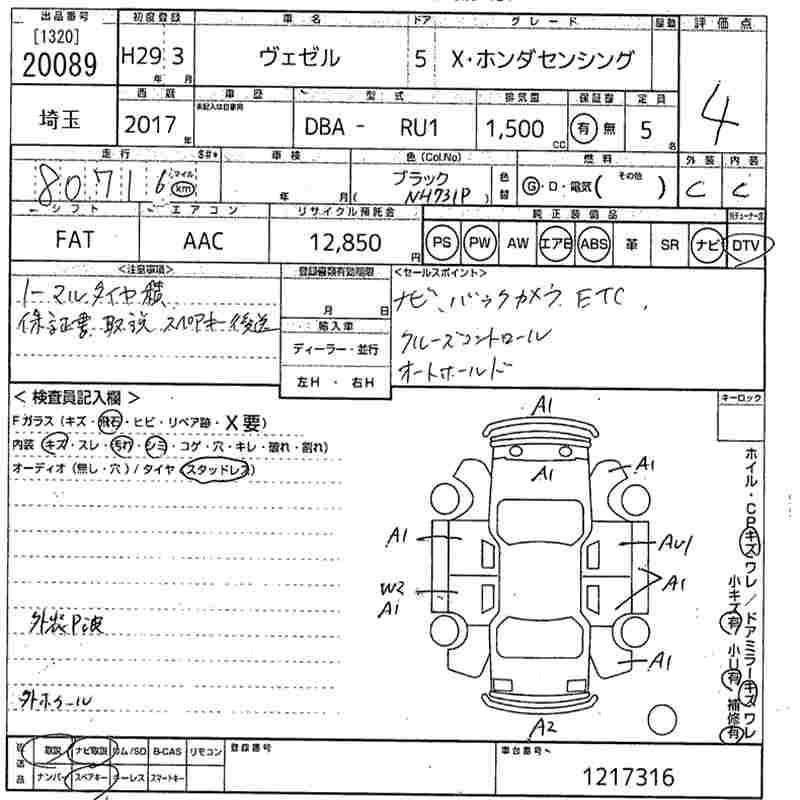 出品番号 初度登録 車名 ドア グレード 評価点
[1320]
20089 H29年 3月 ヴェゼル 5 X・ホンダセンシング 4
西暦 車歴 型式 排気量 保証書 定員
未記入は自家用
埼玉 2017年 DBA - RU1 1,500cc 有 無 5名
走行 S#* 車検 色(Col.No) 燃料 外装 内装
80716 マイル km 年 月 ブラック (N4731P) 色替 G・D・電気( その他 ) C C
シフト エアコン リサイクル預託金 純正装備品
FAT AAC 12,850円 PS PW AW エアB ABS 革 SR ナビ DTV
<注意事項> <セールスポイント>
ノーマルタイヤ積 ナビ、バックカメラ ETC、
保証書 取説 スペアキー後送 クルーズコントロール
オートホールド
月 日
輸入車
ディーラー・並行
左H ・ 右H
<検査員記入欄> キーロック
Fガラス(キズ・飛石・ヒビ・リペア跡・X要)
内装(キズ・スレ・汚れ・シミ・コゲ・穴・キレ・破れ・割れ)
オーディオ(無し・穴)/タイヤ(スタッドレス)
外装P波
外ホイール
A1
A1
A1
A1
AU1
A1
W2
A1
A1
A2
ホイル・CPキズワレ/ドアミラーキズワレ
小キズ有 小U有 補修有
後送品 取説 ナビ取説 ロム/SD B-CAS リモコン 登録番号 車台番号
ナンバー スペアキー キーレス スマートキー 1217316